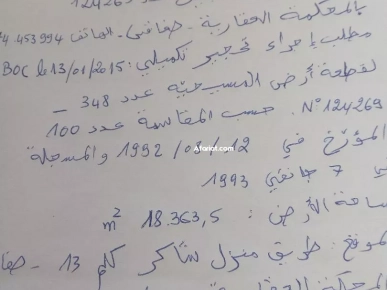 124269
بالمحكمة العقارية - صفاقس. الهاتف 74.453994
مطلب إجراء تحجير تكميلي: BOC le 13/01/2015
لقطعة أرض المسيحية عدد 348 -
N° 124269. حسب المقاسمة عدد 100
المؤرخ في 12/ /1992 والمسجلة
7 جانفي 1993
مساحة الأرض: 18.363,5 m²
الموقع: طريق منزل شاكر كلم 13 - صفا
Afariat.com